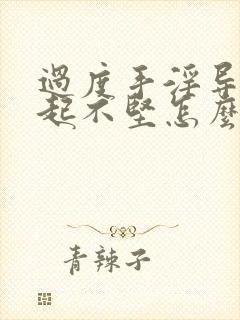 過度手淫导
起不堅怎麼
青辣子